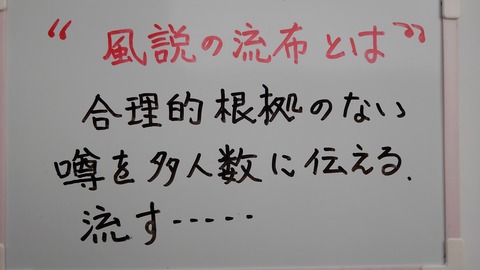 “風説の流布とは”
合理的根拠のない
噂を多人数に伝える.
流す‥‥‥